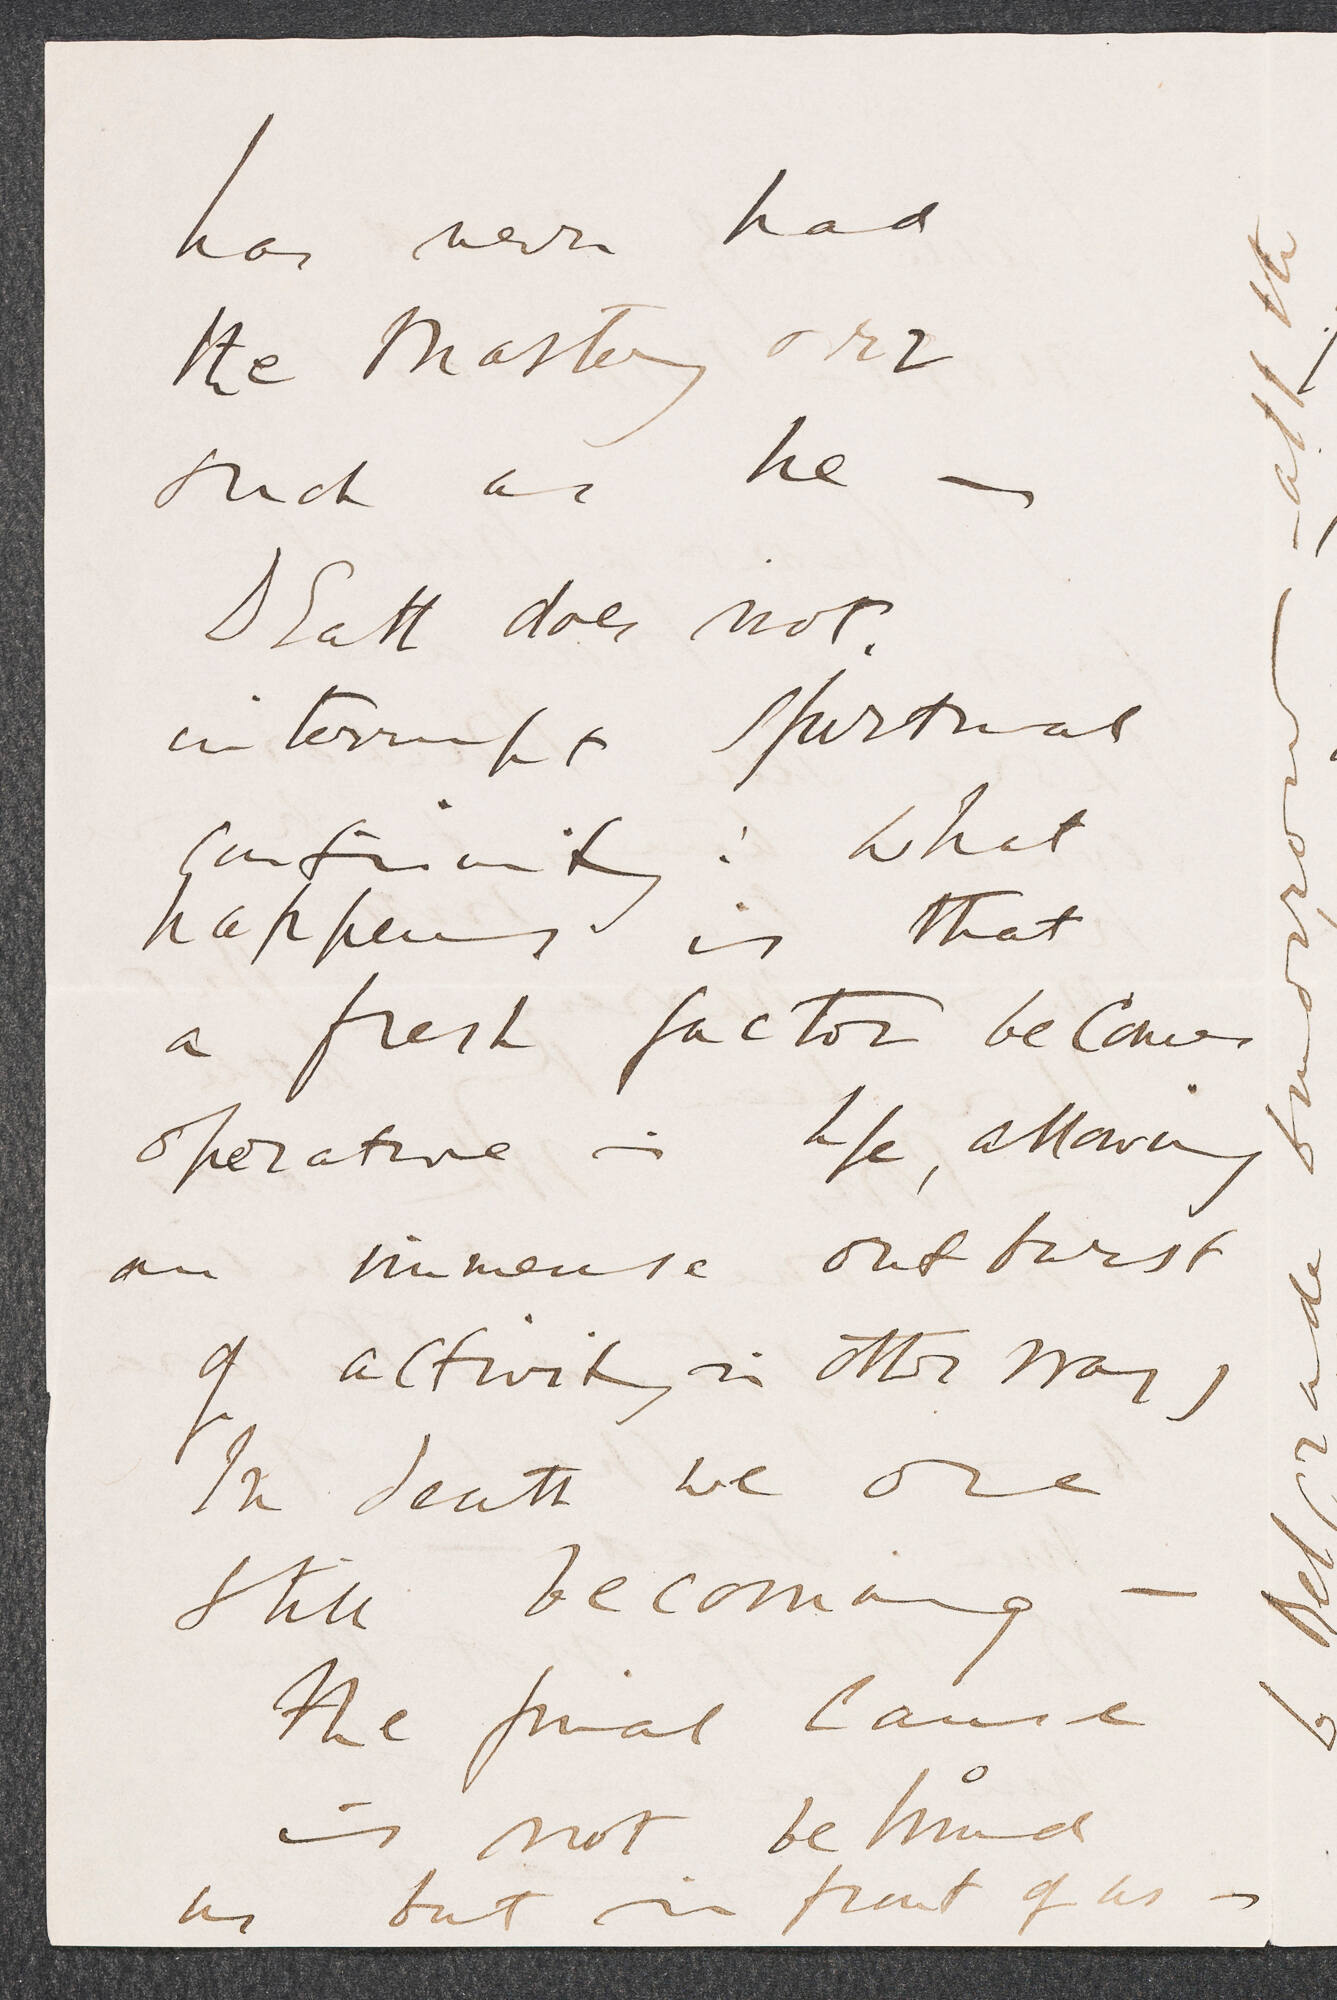 has never had
the Mastery over
such as he –
Death does not
interrupt spiritual
continuity : what
happens is that
a fresh factor becomes
operative in life, allowing
an immense outburst
of activity in other ways,
In death we are
still becoming –
The final cause
is not behind
us but in front of us –
to Belgrade tomorrow – all the